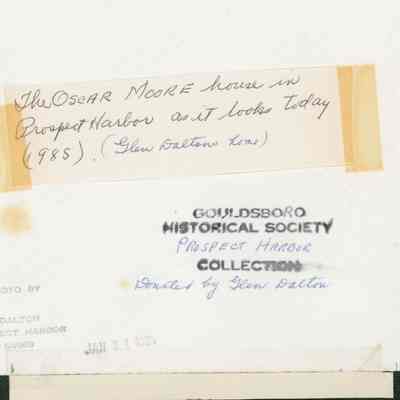 The OSCAR MOORE house in
Prospect Harbor as it looks today
(1985). (Glen Daltons home)
GOULDSBORO
HISTORICAL SOCIETY
PROSPECT HARBOR
COLLECTION
Donated by Glen Dalton
OTO BY
DALTON
ECT HARBOR
JAN 21